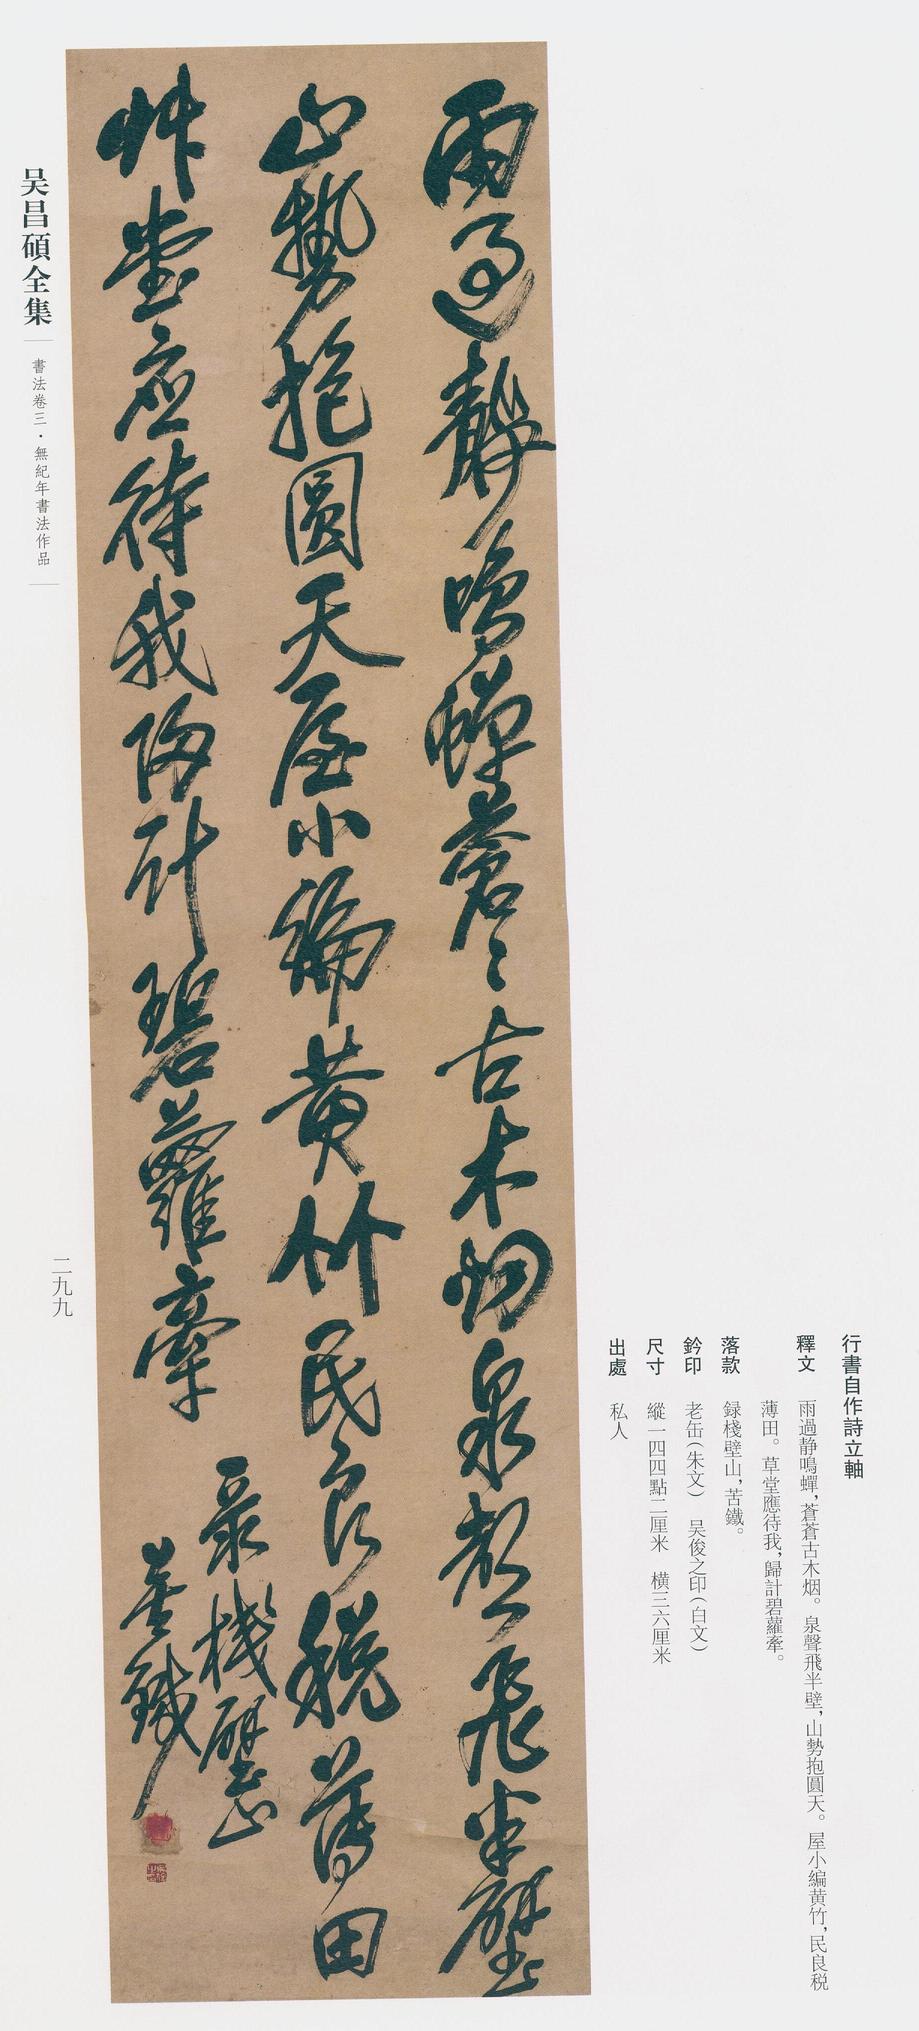 行書自作詩立軸
釋文　雨過静鳴蟬，蒼蒼古木烟。泉聲飛半壁，山勢抱圓天。屋小編黄竹，民良税
薄田。草堂應待我，歸計碧蘿牽。
落款　録棧壁山，苦鐵。
鈐印　老缶（朱文）　吴俊之印（白文）
尺寸　縱一四四點二厘米　横三六厘米
出處　私人
雨過静鳴蟬蒼〻古木烟泉聲飛半壁
山勢抱圓天屋小編黄竹民良税薄田
艸堂應待我歸計碧蘿牽
録棧壁山
苦鐵
吴昌碩全集
書法卷三·無紀年書法作品
二九九